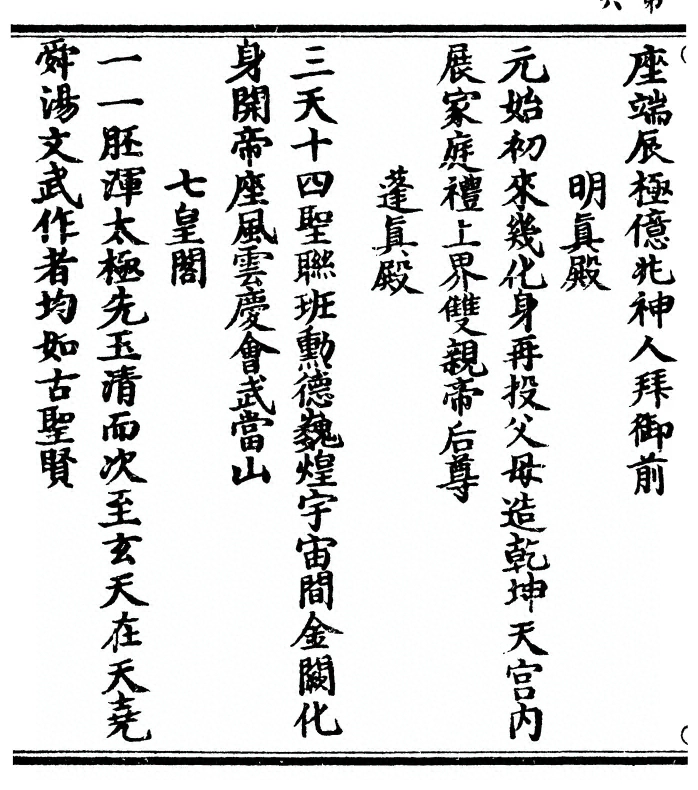 座端辰極億兆神人拜御前
明眞殿
元始初來幾化身再投父母造乾坤天宮内
展家庭禮上界雙親帝后尊
蓬眞殿
三天十四聖聯班勳德巍煌宇宙間金闕化
身開帝座風雲慶會武當山
七皇閣
一一胚渾太極先玉清而次至玄天在天堯
舜湯文武作者均如古聖賢